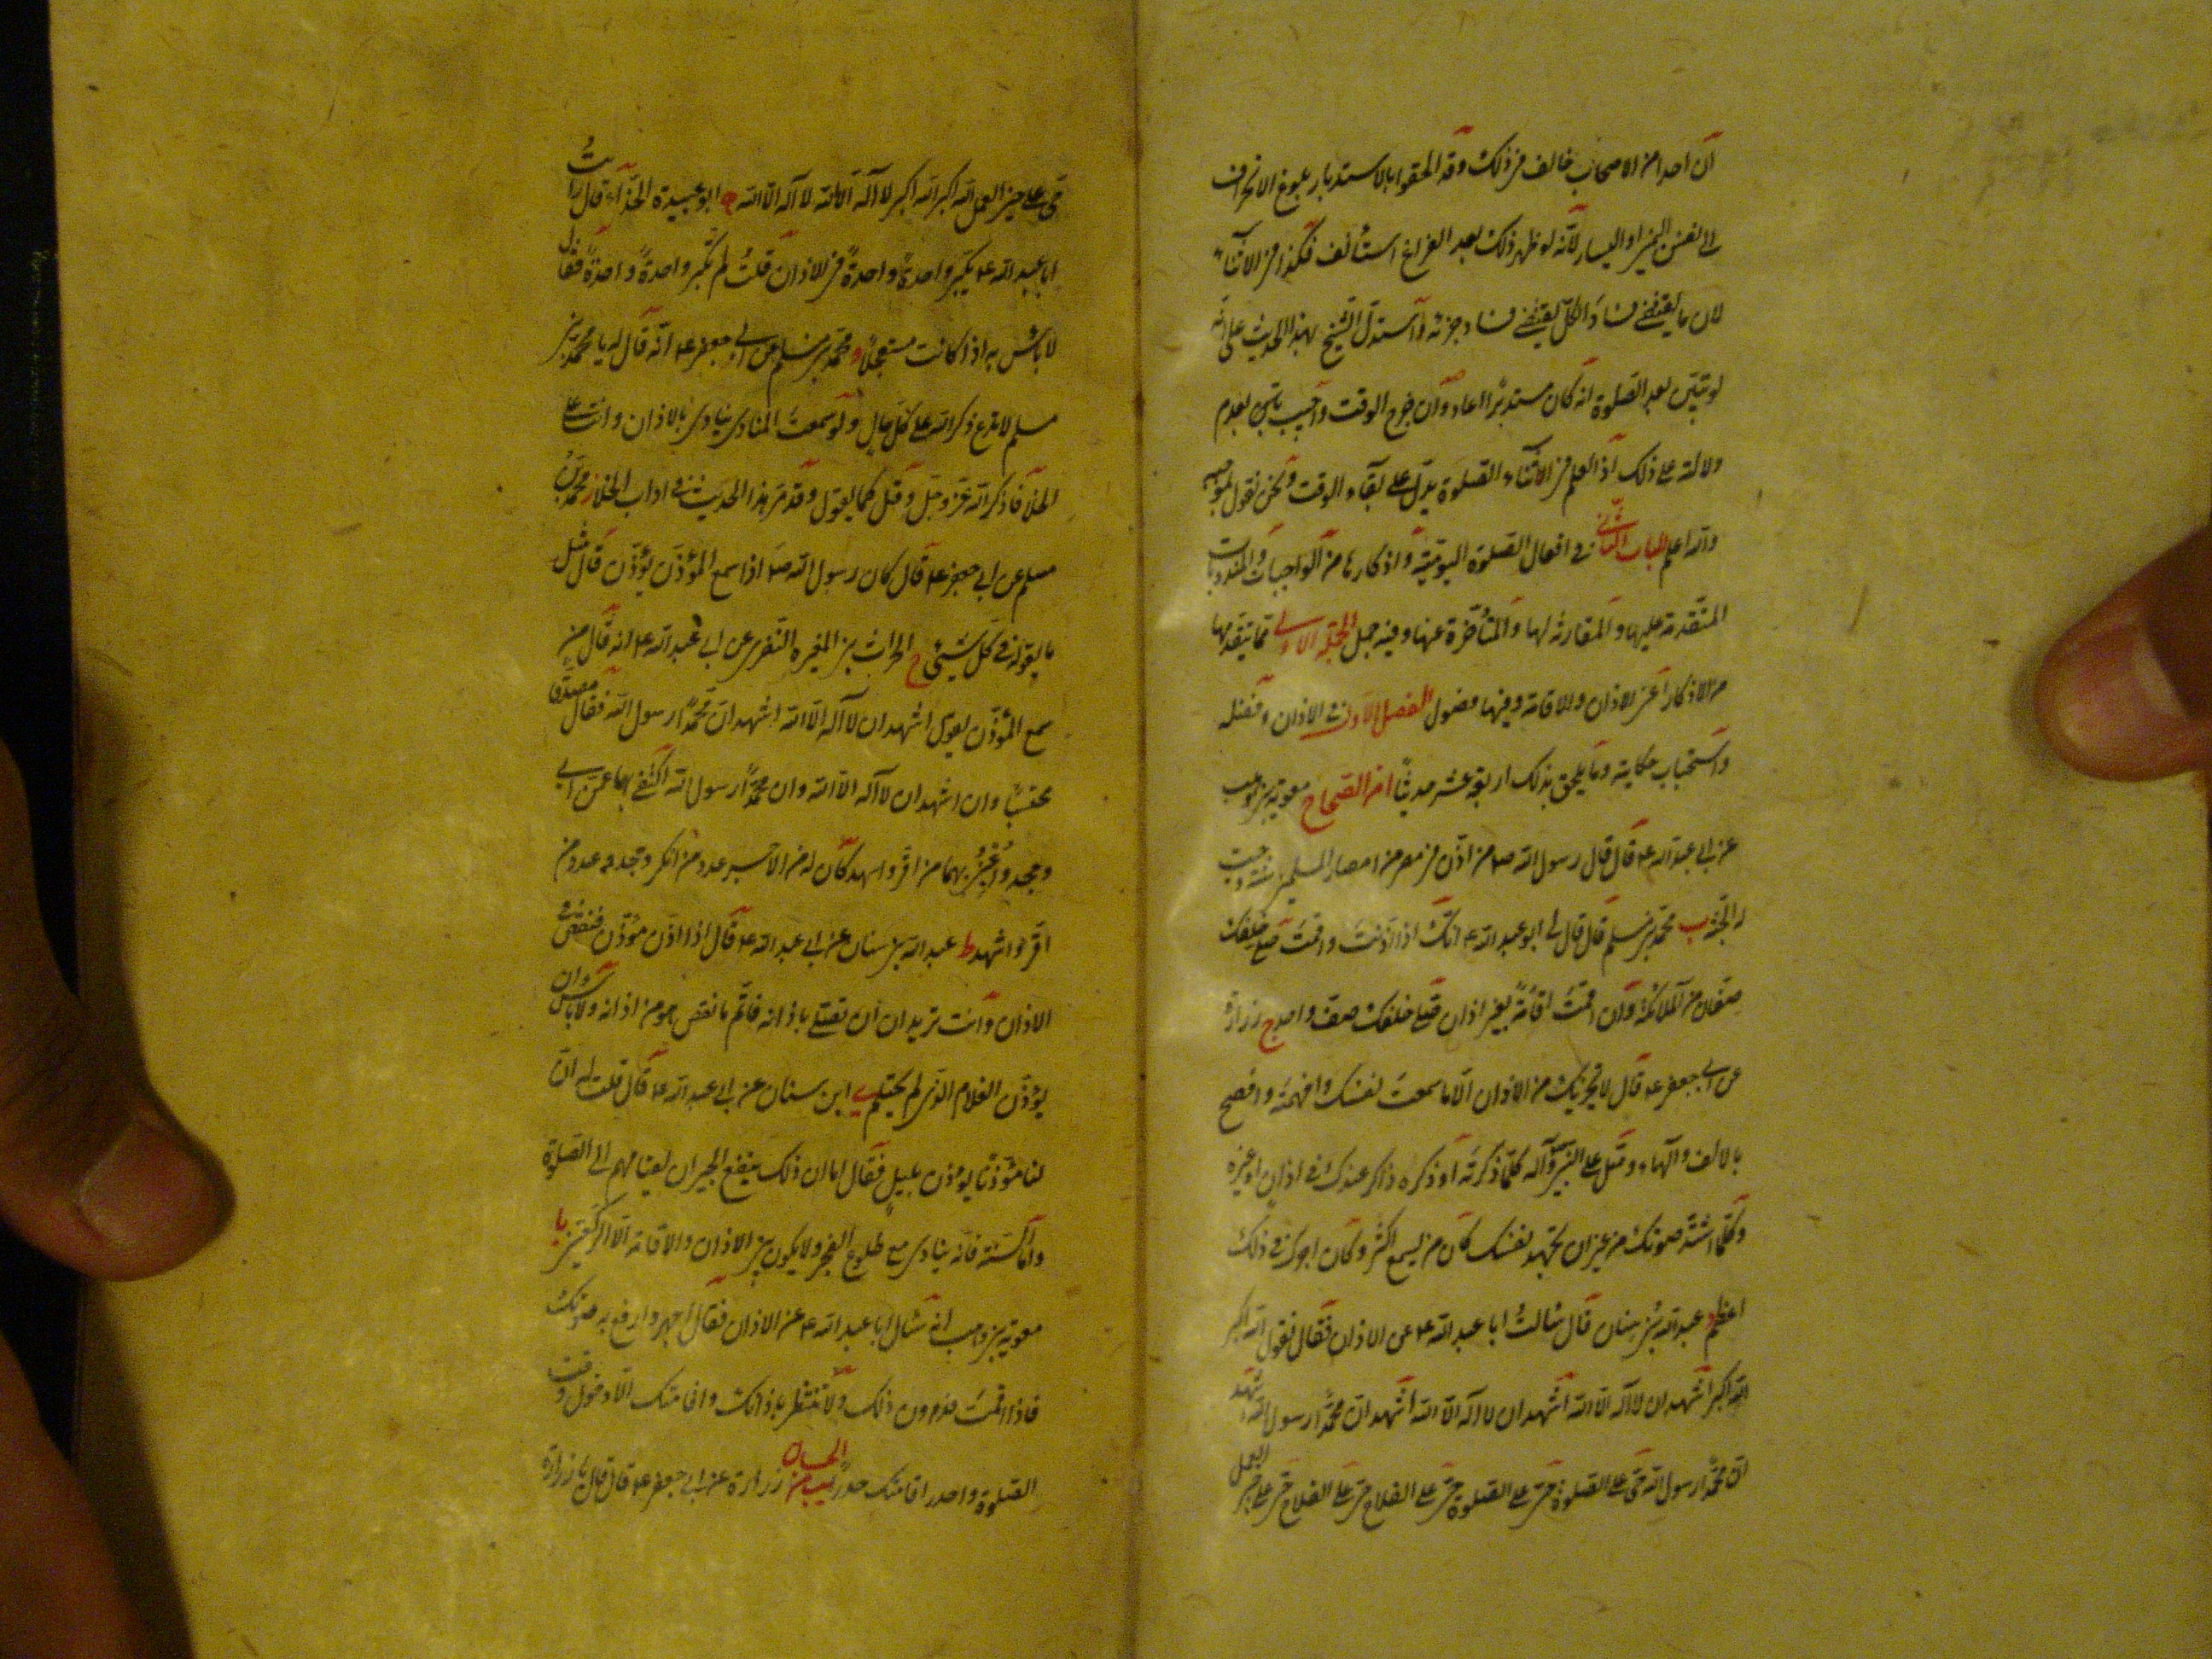 ان احدا من الاصحاب خالف في ذلك وقد الحقوا بالاستدبار بلوغ الانحراف
الى نفس اليمين او اليسار لأنه لو ظهر ذلك بعد الفراغ استأنف فكذا في الاثناء
لان ما يقتضي فساد الكل يقتضي فساد جزئه واستدل الشيخ بهذا الحديث على انه
لو تبين بعد الصلوة انه كان مستدبرا اعاد وان خرج الوقت واجيب بعدم
دلالته على ذلك اذ العلم في الاثناء الصلوة يدل على بقاء الوقت ونحن نقول بموجبه
والله اعلم الباب الثاني في افعال الصلوة اليومية واذكارها من الواجبات والمندوبات
المتقدمة عليها والمقارنة لها والمتأخرة عنها وفيه جمل الجملة الاولى فما يتقدمها
من الاذكار اعني الاذان والاقامة وفيها فصول الفصل الاول في الاذان وفضله
واستحباب حكايته وما يلحق بذلك اربعة عشر حديثا ا من الصحاح معوية بن وهب
عن ابي عبد الله ع قال قال رسول الله ص من اذن في مصر من امصار المسلمين سنة وجبت
له الجنة ب محمد بن مسلم قال قال لي ابو عبد الله ع انك اذا اذنت واقمت صلى خلفك
صفان من الملائكة وان اقمت اقامة بغير اذان صلى خلفك صف واحد ج زرارة
عن ابي جعفر ع قال لا يجزيك من الاذان الا ما سمعت نفسك وافهمته وافصح
بالالف والهاء وصل على النبي وآله كلما ذكرته او ذكره ذاكر عندك في اذان او غيره
وكلما اشتد صوتك من غير ان تجهد نفسك كان من يسمع اكثر وكان اجرك في ذلك
اعظم د عبد الله بن سنان قال سألت ابا عبد الله ع عن الاذان فقال تقول الله اكبر
الله اكبر اشهد ان لا اله الا الله اشهد ان لا اله الا الله اشهد ان محمدا رسول الله اشهد
ان محمدا رسول الله حي على الصلوة حي على الصلوة حي على الفلاح حي على الفلاح حي على خير العمل
حي على خير العمل الله اكبر الله اكبر لا اله الا الله لا اله الا الله ه ابو عبيدة الحذاء قال رأيت
ابا عبد الله ع يكبر واحدة واحدة في الاذان قلت لم تكبر واحدة واحدة فقال
لا بأس به اذا كانت مستعجلا و محمد بن مسلم عن ابي جعفر ع انه قال له يا محمد بن
مسلم لا تدع ذكر الله على كل حال ولو سمعت المنادي ينادي بالاذان وانت على
الخلا فاذكر الله عز وجل وقل كما يقول وقد مر هذا الحديث في اداب الخلا ز محمد بن
مسلم عن ابي جعفر ع قال كان رسول الله ص اذا سمع المؤذن يؤذن قال مثل
ما يقوله في كل شيئ ح الحارث بن المغيرة النضري عن ابي عبد الله ع انه قال من
سمع المؤذن يقول اشهد ان لا اله الا الله اشهد ان محمدا رسول الله فقال مصدقا
محتسبا وان اشهد ان لا اله الا الله وان محمدا رسول الله اكتفي بها عمن ابى
وجحد واعين بهما من اقر واشهد كان له من الاجر عدد من انكر وجحد وعدد من
اقر واشهد ط عبد الله بن سنان عن ابي عبد الله ع قال اذا اذن مؤذن فنقص
الاذان وانت تريد ان تصلي باذانه فاتم ما نقص هو من اذانه ولا بأس وان
يؤذن الغلام الذي لم يحتلم ي ابن سنان عن ابي عبد الله ع قال قلت له ان
لنا مؤذنا يؤذن بليل فقال اما ان ذلك ينفع الجيران لقيامهم الى الصلوة
واما السنة فانه ينادي مع طلوع الفجر ولا يكون بين الاذان والاقامة الا الركعتين يا
معوية بن وهب انه سئال ابا عبد الله ع عن الاذان فقال اجهر وارفع به صوتك
فاذا اقمت فدون ذلك ولا تنتظر باذانك واقامتك الا دخول وقت
الصلوة واحدر اقامتك حدرا يب من الحسان زرارة عن ابي جعفر ع قال قال يا زرارة